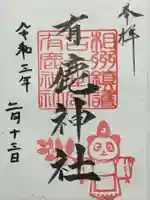 奉拝
有鹿神社
令和三年
二月十三日
有鹿神社